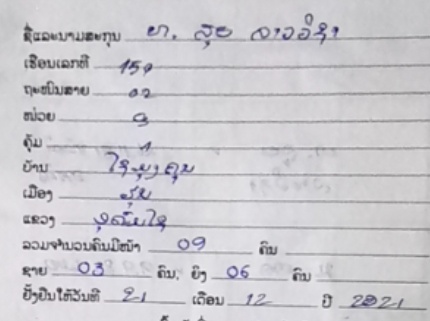 ຊື່ແລະນາມສະກຸນ ທ. ສຸຍ ລາວວໍຊົງ
ເຮືອນເລກທີ 159
ຖະໜົນສາຍ 02
ໜ່ວຍ 9
ຄຸ້ມ 1
ບ້ານ ໄຊມຸງຄຸນ
ເມືອງ ຮຸນ
ແຂວງ ອຸດົມໄຊ
ລວມຈຳນວນຄົນມີໜ້າ 09 ຄົນ
ຊາຍ 03 ຄົນ, ຍິງ 06 ຄົນ
ຢັ້ງຢືນໃຫ້ວັນທີ 21 ເດືອນ 12 ປີ 2021